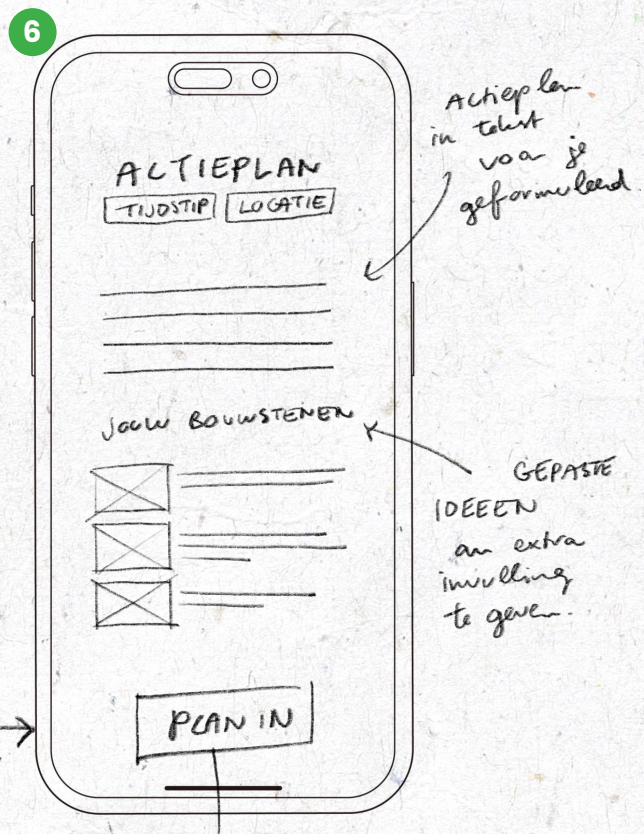 6
ACTIEPLAN
TIJDSTIP LOCATIE
Actieplan
in tekst
voor je
geformuleerd
JOUW BOUWSTENEN
GEPASTE
IDEEEN
om extra
invulling
te geven.
PLAN IN